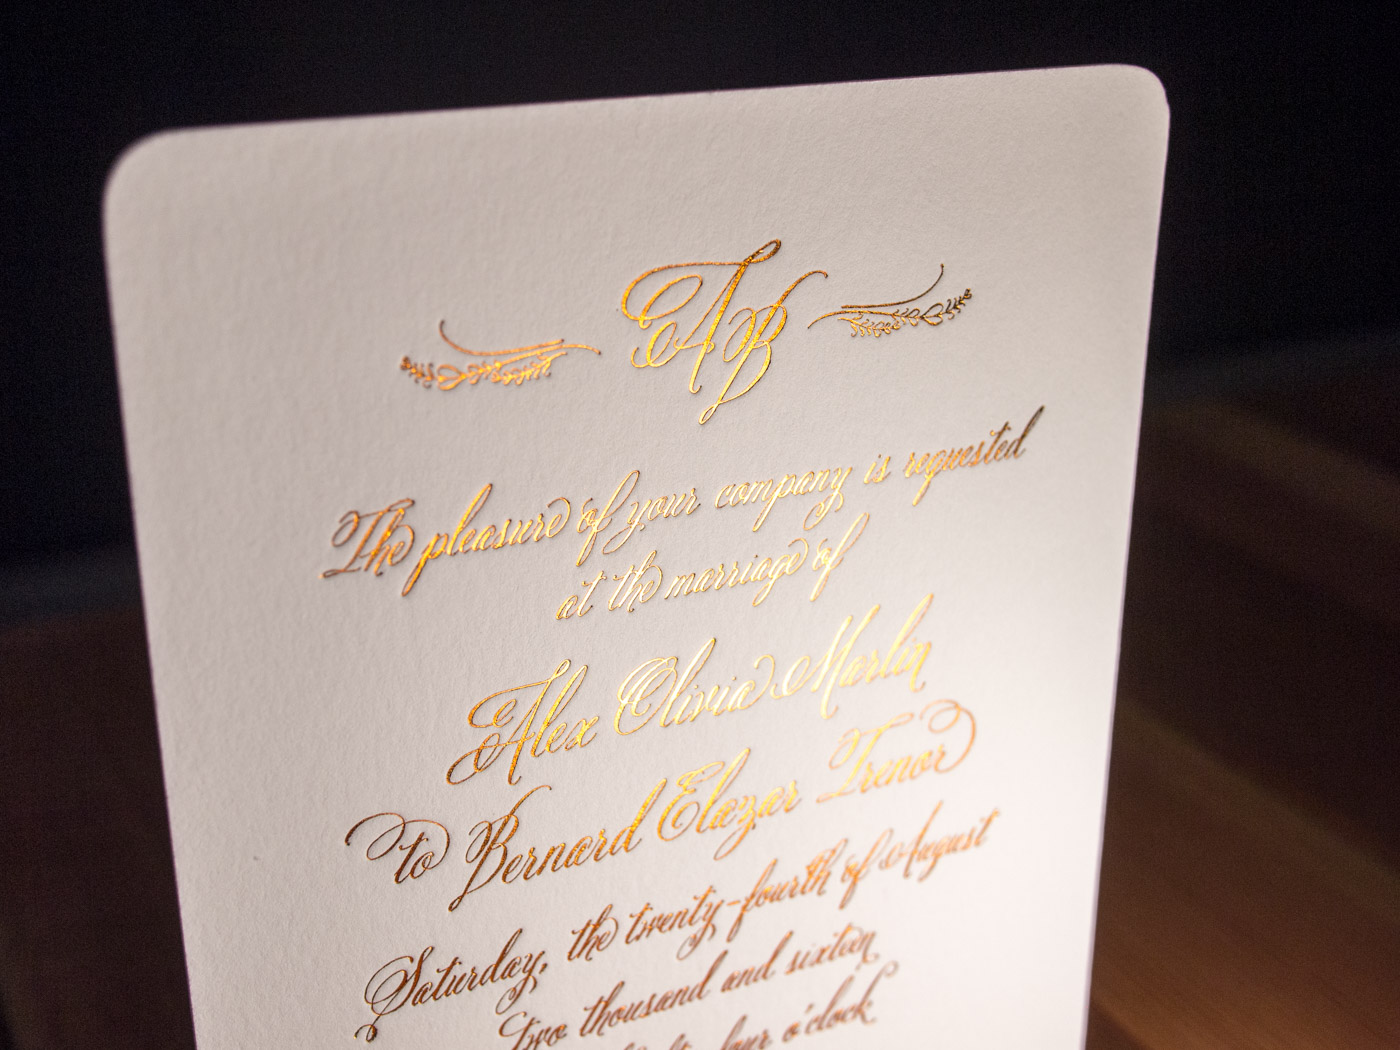 AB
The pleasure of your company is requested
at the marriage of
Alex Olivia Marlin
to Bernard Elazar Trenor
Saturday, the twenty-fourth of August
two thousand and sixteen
four o'clock